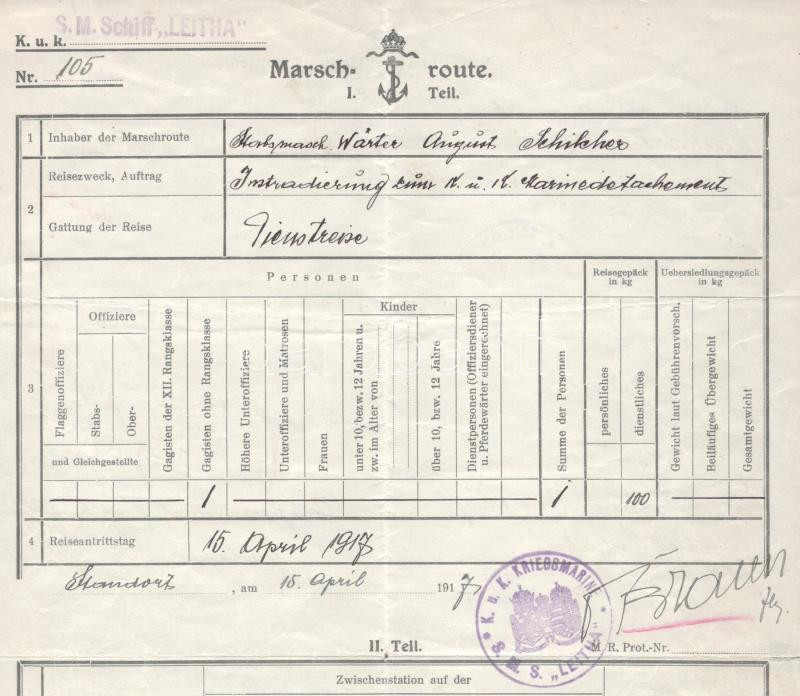 S. M. Schiff „LEITHA"
K. u. k.
Nr. 105
Marsch- route.
I. Teil.
1 Inhaber der Marschroute Stabsmasch. Wärter August Schilcher
2 Reisezweck, Auftrag Instradierung zum K. u. K. Marinedetachement
Gattung der Reise Dienstreise
3 Personen
Reisegepäck in kg
Uebersiedlungsgepäck in kg
Flaggenoffiziere
Offiziere
Stabs-
Ober-
und Gleichgestellte
Gagisten der XII. Rangsklasse
Gagisten ohne Rangsklasse
Höhere Unteroffiziere
Unteroffiziere und Matrosen
Frauen
Kinder
unter 10, bezw. 12 Jahren u.
zw. im Alter von
über 10, bzw. 12 Jahre
Dienstpersonen (Offiziersdiener
u. Pferdewärter eingerechnet)
Summe der Personen
persönliches
dienstliches
Gewicht laut Gebührenvorsch.
Beiläufiges Übergewicht
Gesamtgewicht
1 1 100
4 Reiseantrittstag 15. April 1917
Standort, am 15. April 1917
K. u. K. KRIEGSMARINE
S. M. S. „LEITHA"
II. Teil.
M. R. Prot.-Nr.
Zwischenstation auf der